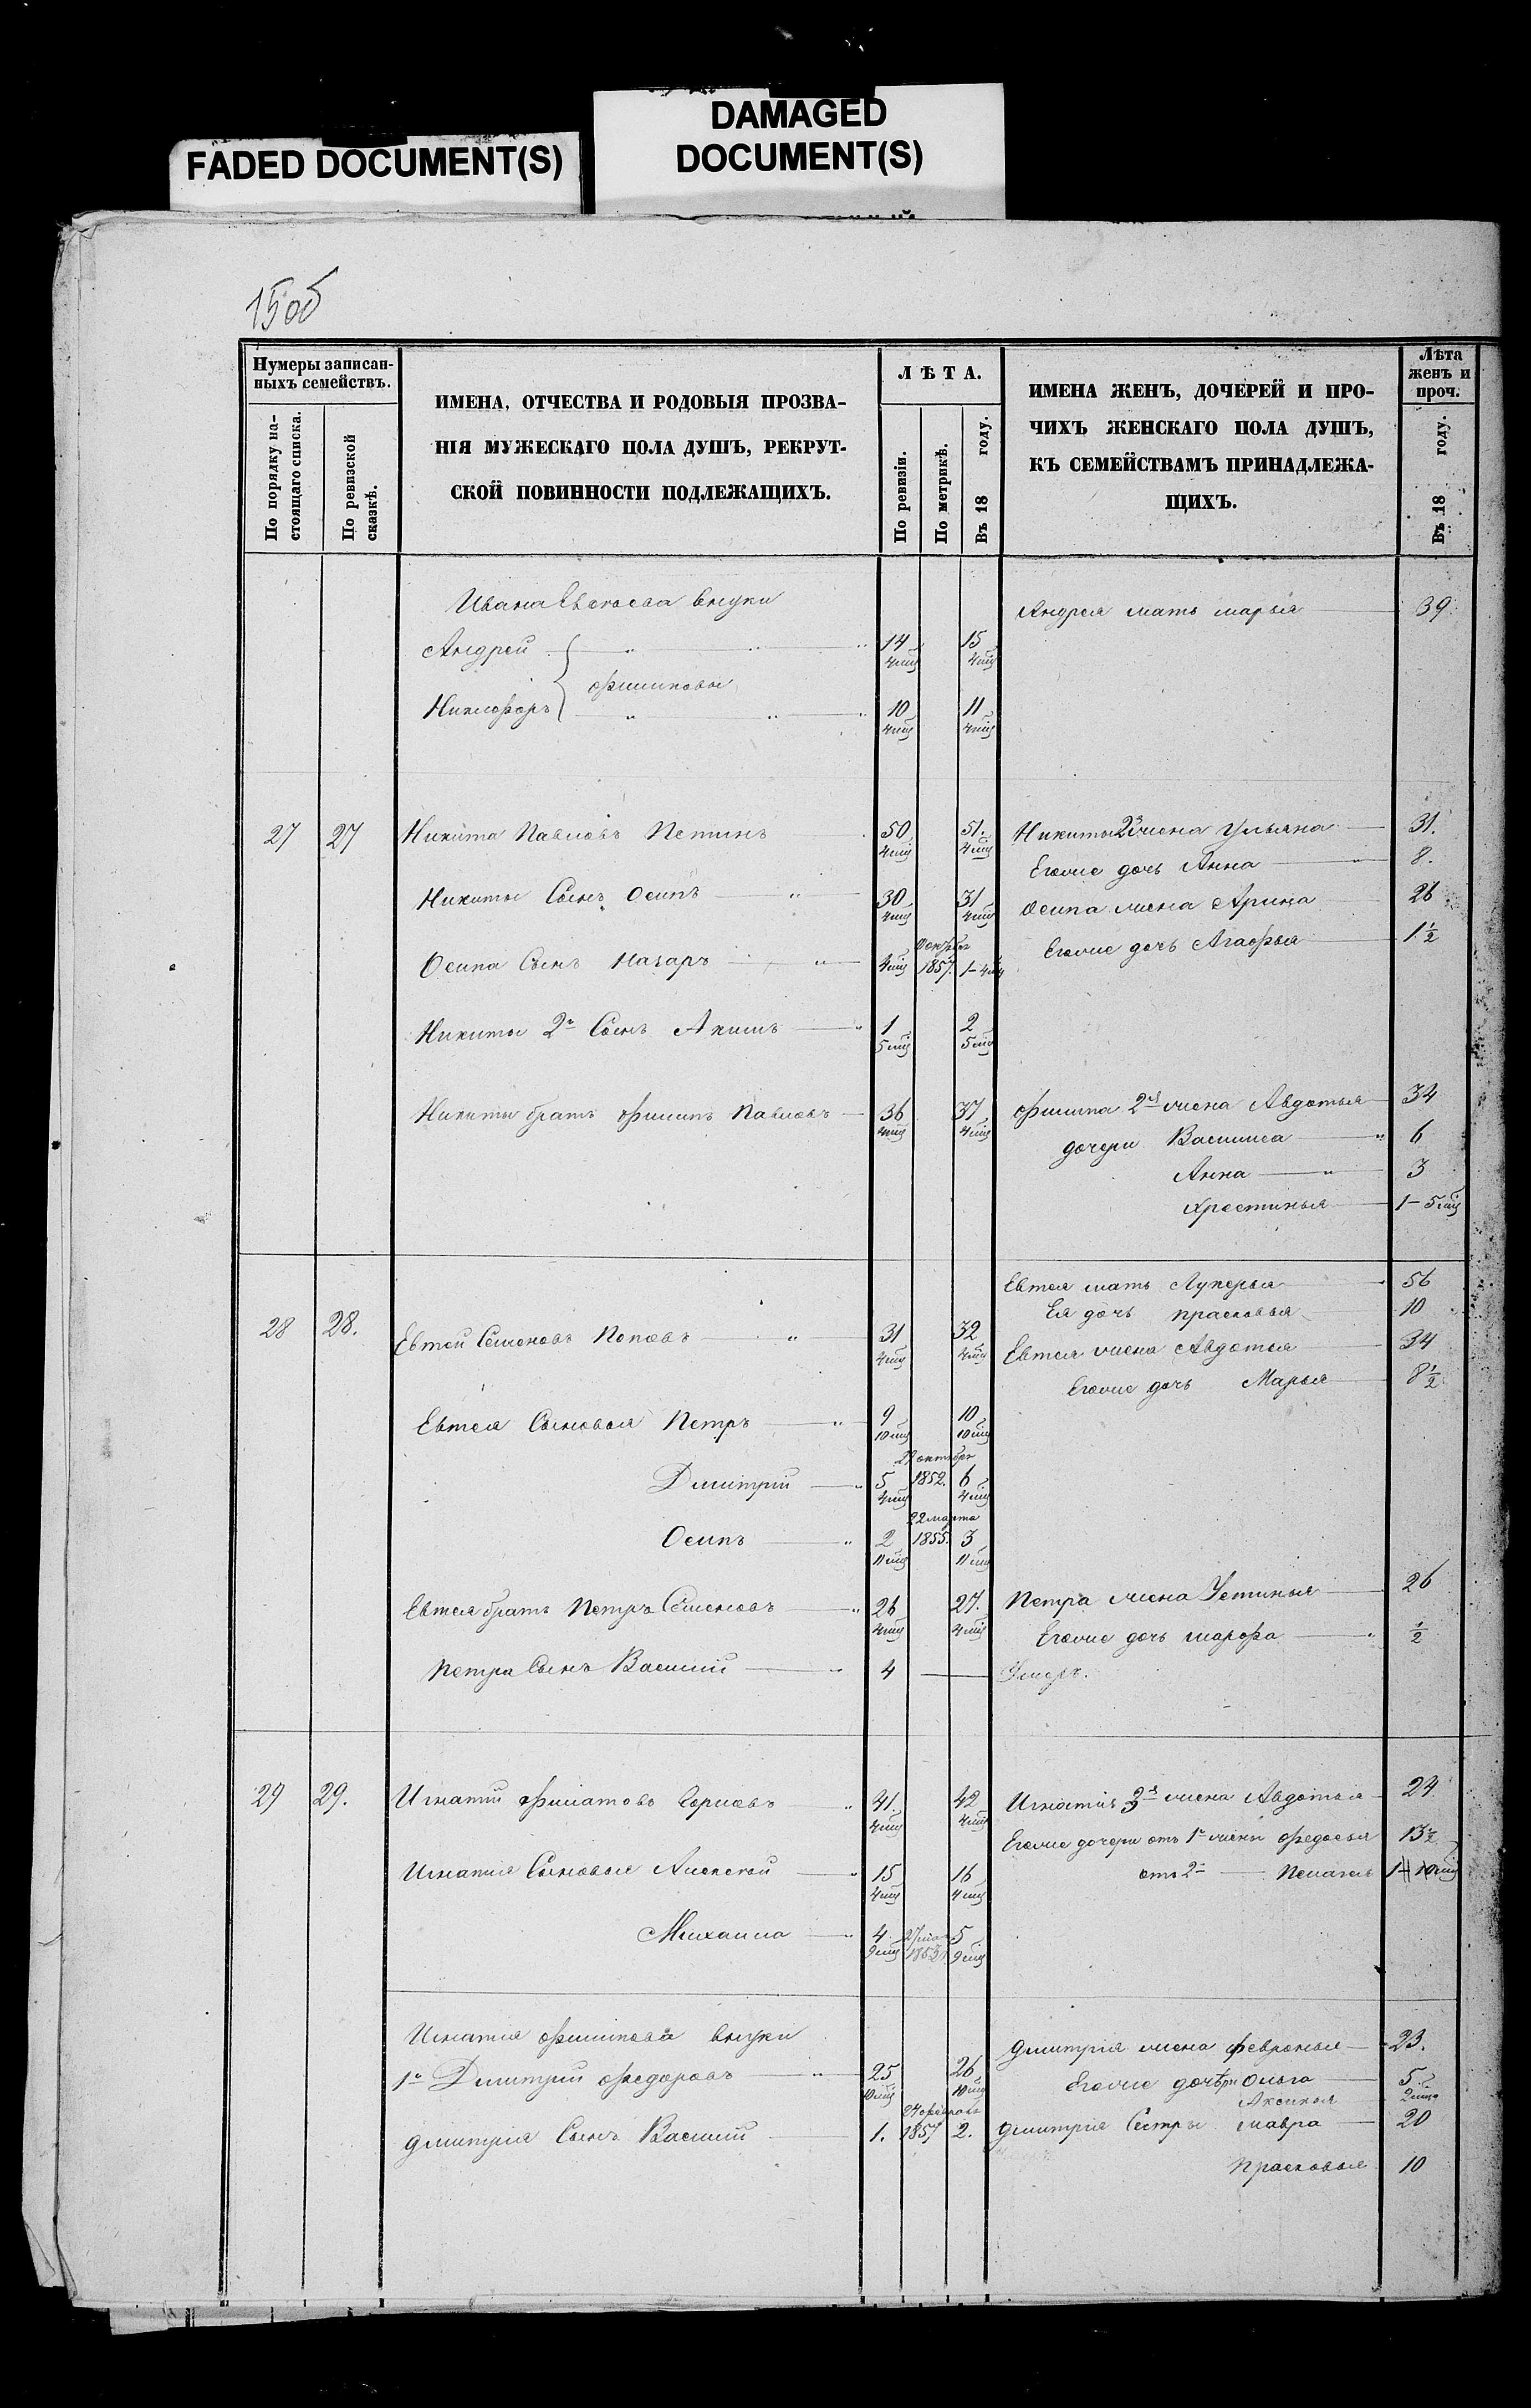 FADED DOCUMENT(S)
DAMAGED
DOCUMENT(S)
15об
Нумеры записан-
ныхъ семействъ.
По порядку на-
стоящаго списка.
По ревизской
сказкѣ.
ИМЕНА, ОТЧЕСТВА И РОДОВЫЯ ПРОЗВА-
НІЯ МУЖЕСКАГО ПОЛА ДУШЪ, РЕКРУТ-
СКОЙ ПОВИННОСТИ ПОДЛЕЖАЩИХЪ.
ЛѢТА.
По ревизіи.
По метрикѣ.
Въ 18 году.
ИМЕНА ЖЕНЪ, ДОЧЕРЕЙ И ПРО-
ЧИХЪ ЖЕНСКАГО ПОЛА ДУШЪ,
КЪ СЕМЕЙСТВАМЪ ПРИНАДЛЕЖА-
ЩИХЪ.
Лѣта
женъ и
проч.
Въ 18 году.
Ивана внуки
Андрея мать марья 39
Андрей 14 4мц 15 4мц
филиповы
Никифоръ 10 4мц 11 4мц
27 27 Никита Павловъ Петинъ 50 4мц 51. 4мц Никиты 2я жена Ульяна 31.
Егоже дочь Анна 8.
Никиты Сынъ Осипъ 30 4мц 31 4мц Осипа жена Арина 26
Осипа Сынъ Назаръ 4мц 1857. 1-4мц Егоже дочь Агафья 1 1/2
Никиты 2й Сынъ Акимъ 1 5мц 2 5мц
Никиты братъ филипъ Павловъ 36 4мц 37 4мц филипа 2я жена Авдотья 34
дочери Василиса 6
Анна 3
Хрестинья 1-5мц
Евтея мать Лукерья 56
Ея дочь прасковья 10
28 28. Евтей Семеновъ Поповъ 31 4мц 32 4мц Евтея жена Авдотья 34
Егоже дочь Марья 8 1/2
Евтея Сыновья Петръ 9 10мц 10 10мц
Дмитрій 5 4мц октябр 1852. 6 4мц
Осипъ 2 11мц 22 марта 1855. 3 11мц
Евтея братъ Петръ Семеновъ 26 4мц 27. 4мц Петра жена Устинья 26
Егоже дочь марфа 1/2
петра Сынъ Василій 4 Умеръ.
29 29. Игнатій филатовъ 41. 4мц 42 4мц Игнатія 3я жена Авдотья 24
Егоже дочери отъ 1й жены федосья 13 1/2
Игнатія Сыновья Алексей 15 4мц 16 4мц отъ 2й Пелагея
Михаила 4 9мц 1853 5 9мц
Игнатія внуки
1й Дмитрій федоровъ 25 10мц 26 10мц дмитрія жена февронья 23.
Егоже дочери Ольга 5.
Аксинья
дмитрія Сынъ Василій 1. 24 февраля 1857 2. дмитрія Сестры мавра 20
прасковья 10